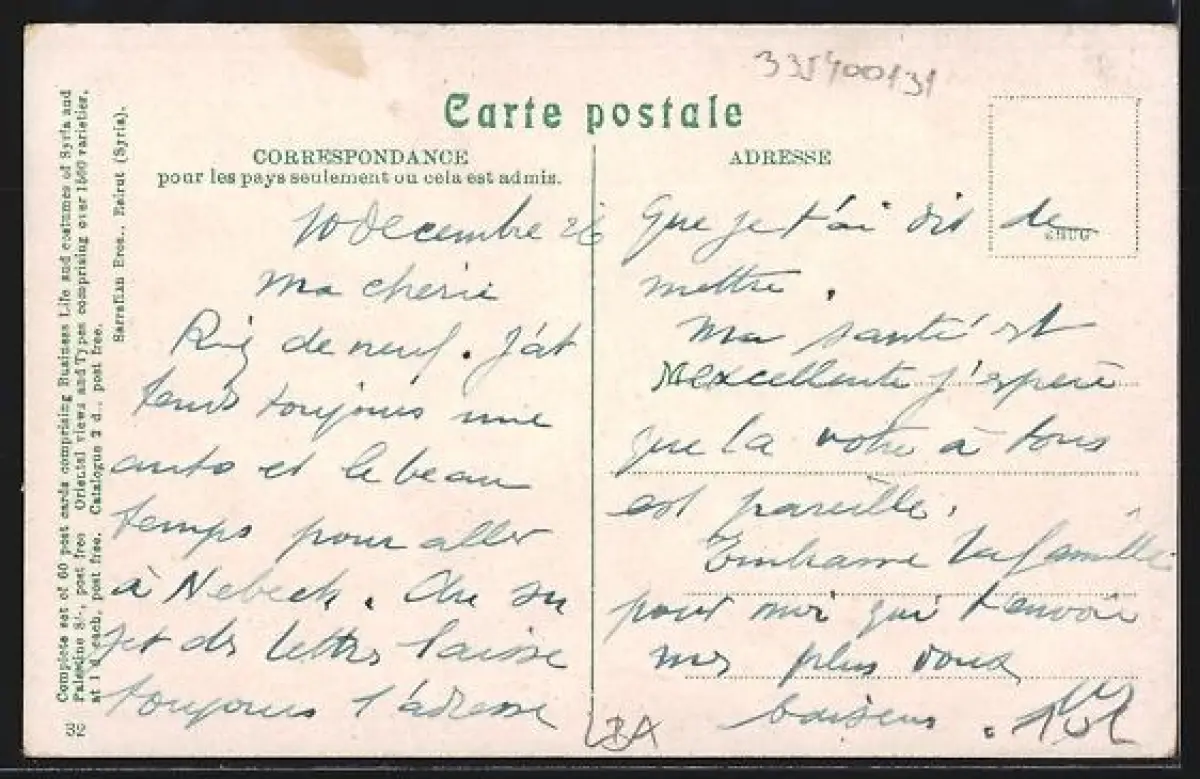 335400131
Carte postale
CORRESPONDANCE
pour les pays seulement ou cela est admis.
ADRESSE
10 decembre 26
ma cherie
Rien de neuf. J'at
tends toujours une
auto et le beau
temps pour aller
à Nebeck. Au su
jet des lettres laisse
toujours l'adresse
que je t'ai dit de
mettre.
Ma santé est
excellente j'espère
que la votre à tous
est pareille.
Embrasse la famille
pour moi qui t'envoie
mes plus doux
baisers.
Complete set of 60 post cards comprising Business Life and costumes of Syria and
Palestine 8/-, post free Oriental views and Types comprising over 1500 varieties,
at 1 d. each, post free. Catalogue 2 d., post free.
Sarrafian Bros., Beirut (Syria).
32